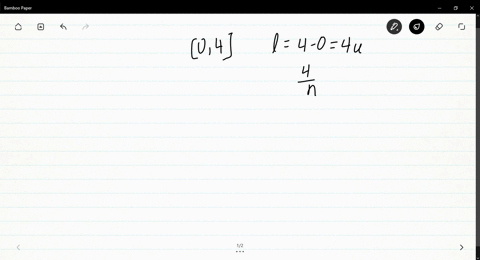 Bamboo Paper
[0,4] l = 4-0 = 4u
4
n
1/2